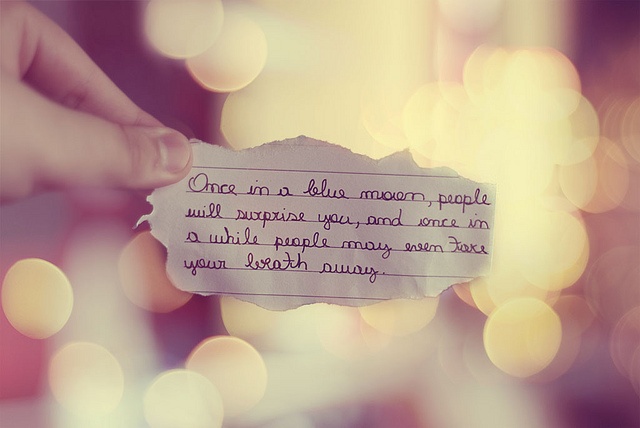 Once in a blue moon, people
will surprise you, and once in
a while people may even take
your breath away.